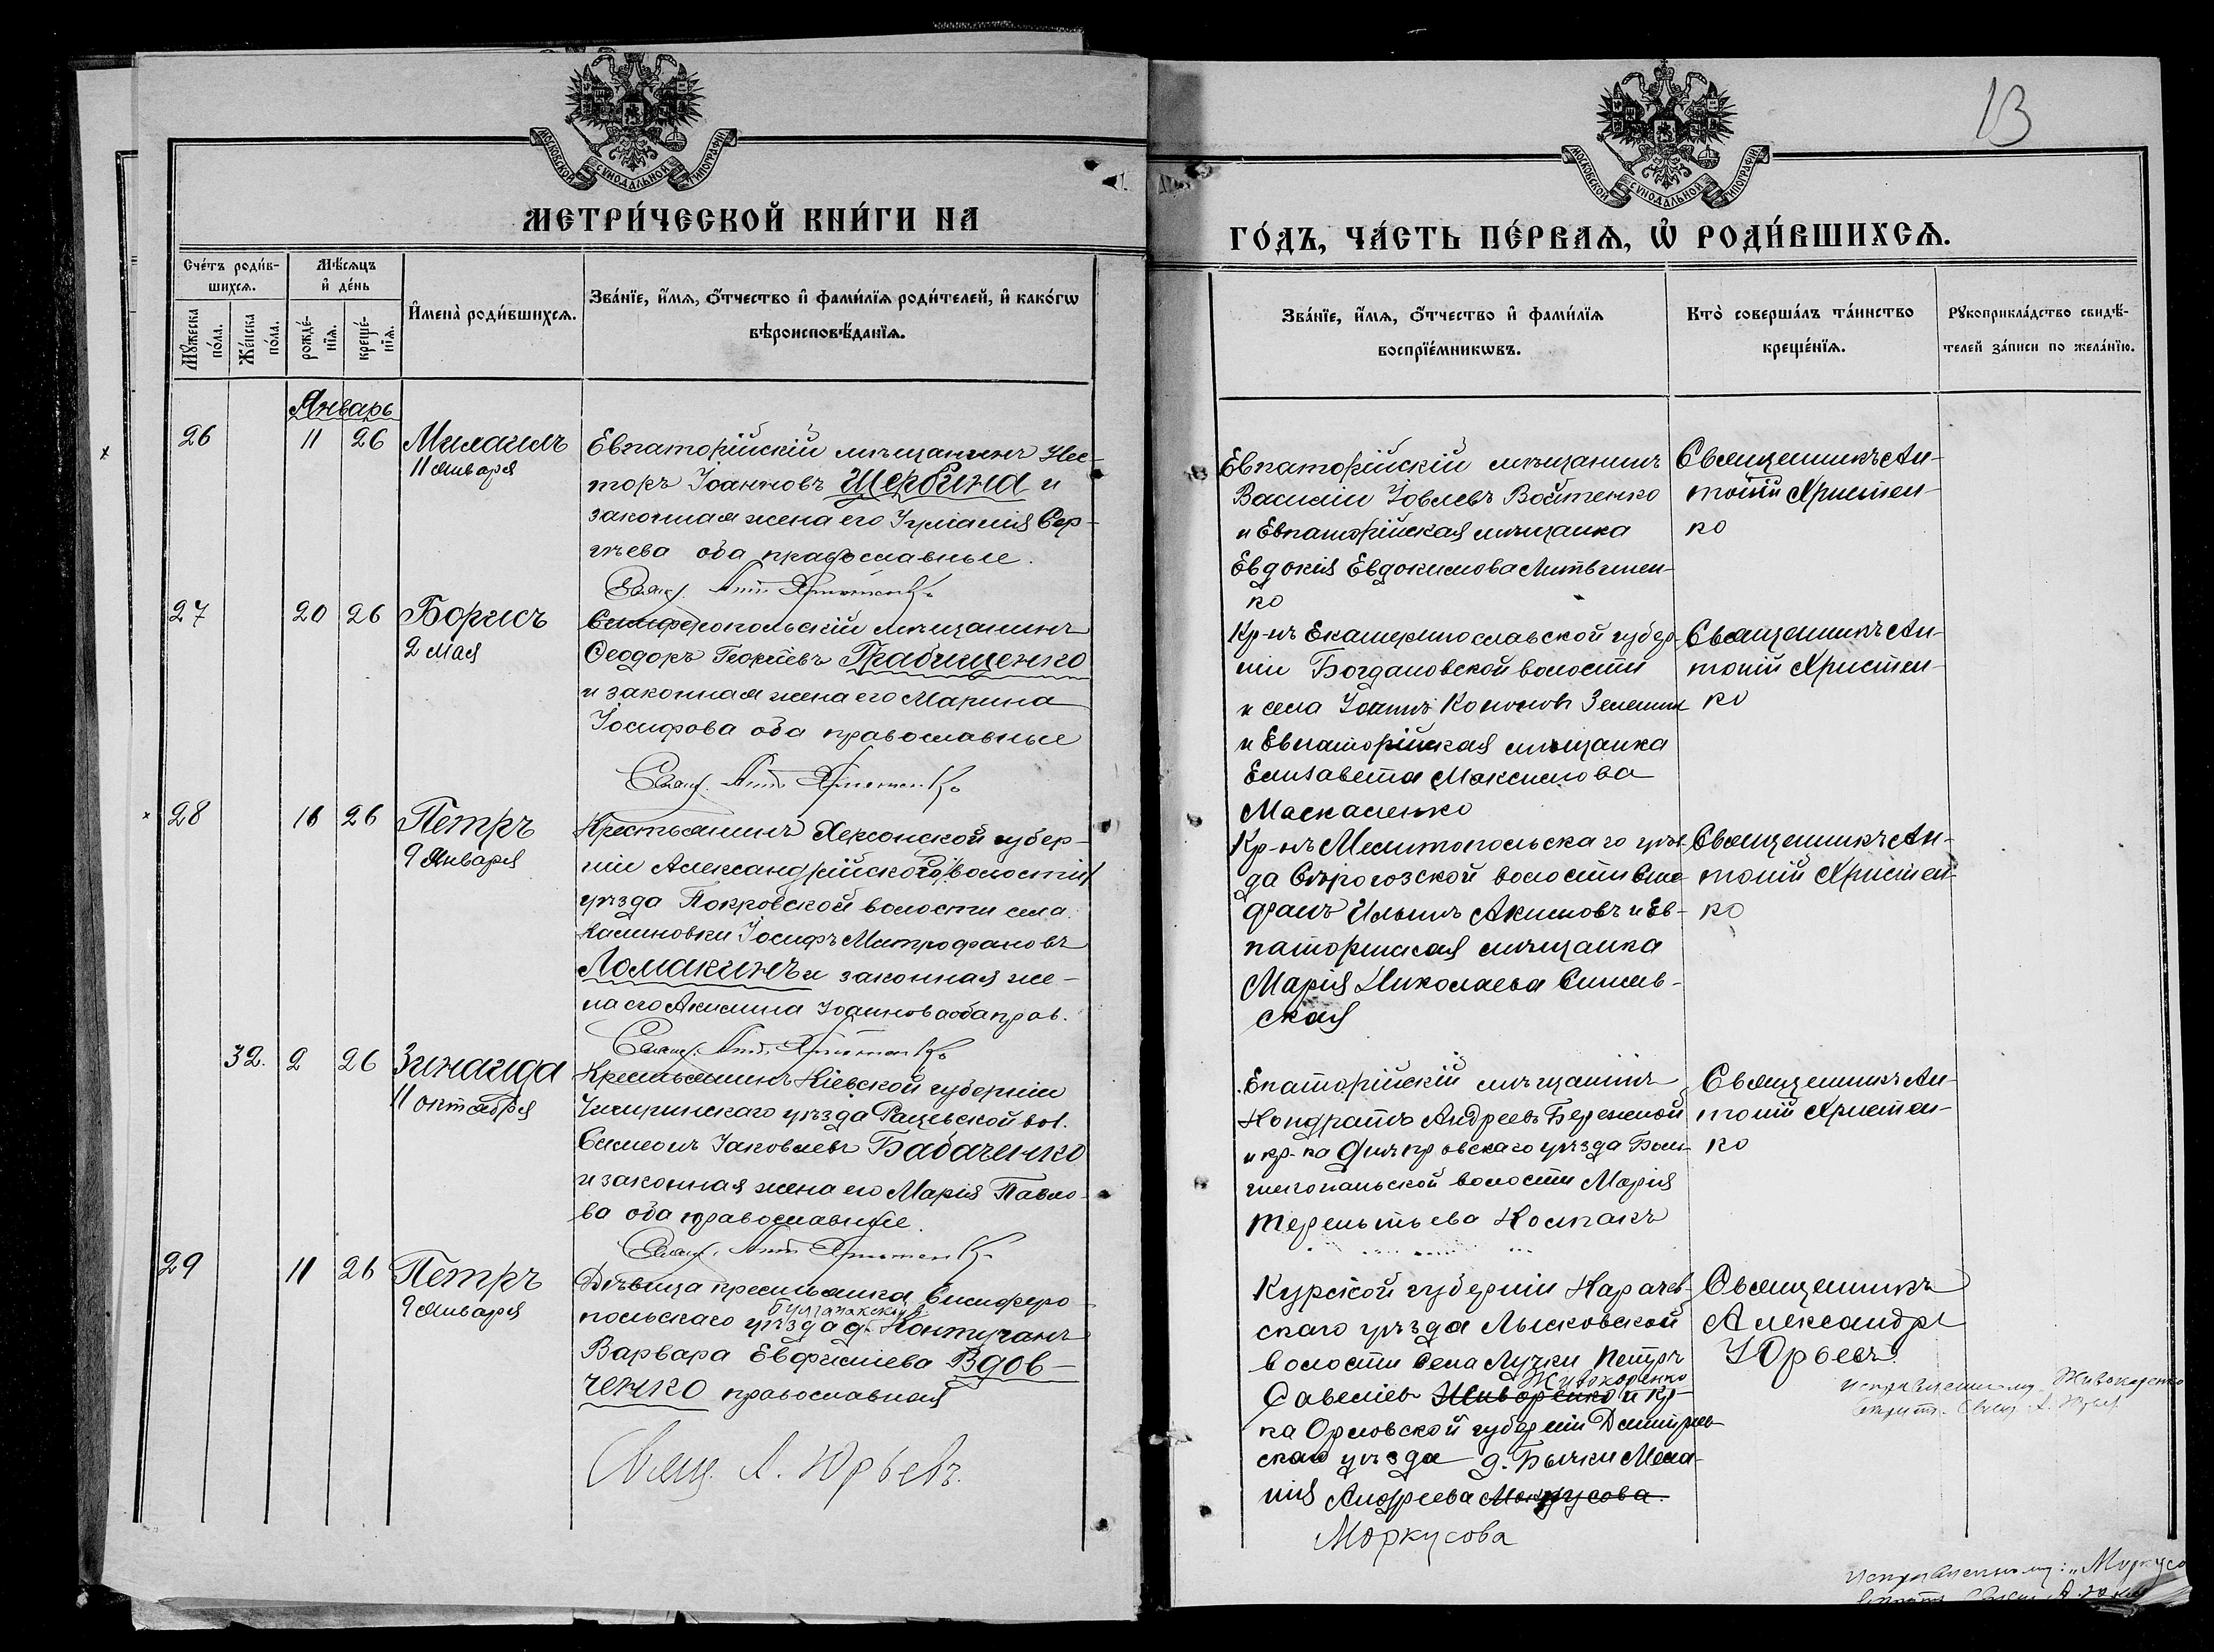 МОСКОВСКОЙ СѴНОДАЛЬНОЙ ТИПОГРАФІИ
МЕТРИ́ЧЕСКОЙ КНИ́ГИ НА
Сче́тъ роди́в-
шихсѧ.
Мѣ́сѧцъ
и҆ де́нь
И҆мена̀ роди́вшихсѧ.
Зва́нїе, и҆́мѧ, ѻ҆́тчество и҆ фами́лїѧ роди́телей, и҆ како́гѡ
вѣроисповѣ́данїѧ.
Мꙋ́жеска
по́ла.
Же́нска
по́ла.
рожде́-
нїѧ.
креще́-
нїѧ.
Январь
26 11 26 Михаилъ
11 января
Евпаторійскій мѣщанинъ Нес-
торъ Іоанновъ Щербина и
законная жена его Сер-
гѣева оба православные.
Свящ. Ант. Христенко
27 20 26 Борисъ
2 мая
Симферопольскій мѣщанинъ
Ѳеодоръ Георгіевъ Грабищенко
и законная жена его Марина
Іосифова оба православные
Свящ. Ант. Христенко
28 16 26 Петръ
9 Января
Крестьянинъ Херсонской губер-
ніи Александрійского волости
уѣзда Покровской волости села
Калиновки Іосифъ Митрофановъ
Ломакинъ и законная же-
на его Акилина Іоаннова оба прав.
Свящ. Ант. Христенко
32. 2 26 Зинаида
11 октября
Крестьянинъ Кіевской губерніи
Чигиринскаго уѣзда Рацевской вол.
Симеонъ Іаковлевъ Бабаченко
и законная жена его Марія Павло-
ва оба православные.
Свящ. Ант. Христенко
29 11 26 Петръ
9 января
Дѣвица крестьянка Симферо-
Булганакской в.
польскаго уѣзда д. Контуганъ
Варвара Евфиміева Вдов-
ченко православная
Свящ. А. Юрьевъ.
13
МОСКОВСКОЙ СѴНОДАЛЬНОЙ ТИПОГРАФІИ
ГО́ДЪ, ЧА́СТЬ ПЕ́РВАѦ, Ѡ҆ РОДИ́ВШИХСѦ.
Зва́нїе, и҆́мѧ, ѻ҆́тчество и҆ фами́лїѧ
воспрїе́мникѡвъ.
Кто̀ соверша́лъ та́инство
креще́нїѧ.
Рꙋкоприкла́дство свидѣ́-
телей за́писи по жела́нїю.
Евпаторійскій мѣщанинъ
Василій Іовлевъ Войтенко
и Евпаторійская мѣщанка
Евдокія Евдокимова Литвинен-
ко
Священникъ Ан-
тоній Христен-
ко
Кр-нъ Екатеринославской губер-
ніи Богдановской волости
и села Іоаннъ Кононовъ
и Евпаторійская мѣщанка
Елизавета Максимова
Маскаленко
Священникъ Ан-
тоній Христен-
ко
Кр-нъ Мелитопольскаго уѣз-
да Сѣрогозской волости
Ильинъ Акимовъ и Ев-
паторійская мѣщанка
Марія Николаева Синев-
ская
Священникъ Ан-
тоній Христен-
ко
Епаторійскій мѣщанинъ
Кондратъ Андреевъ Бережной
и кр-ка Днѣпровскаго уѣзда
волости Марія
Терентьева Колпакъ
Священникъ Ан-
тоній Христен-
ко
Курской губерніи Карачев-
скаго уѣзда Лысковской
волости села Лучки Петръ
Живокоренко
Савеліевъ Живоренко и кр-
ка Орловской губерніи Дмитров-
скаго уѣзда д. Бычки Мела-
нія Андреева Мокрусова.
Моркусова
Священникъ
Александръ
Юрьевъ.
исправленному Живокоренко
Свящ. А. Юрьев
исправленному: „Моркусо
Свящ. А.